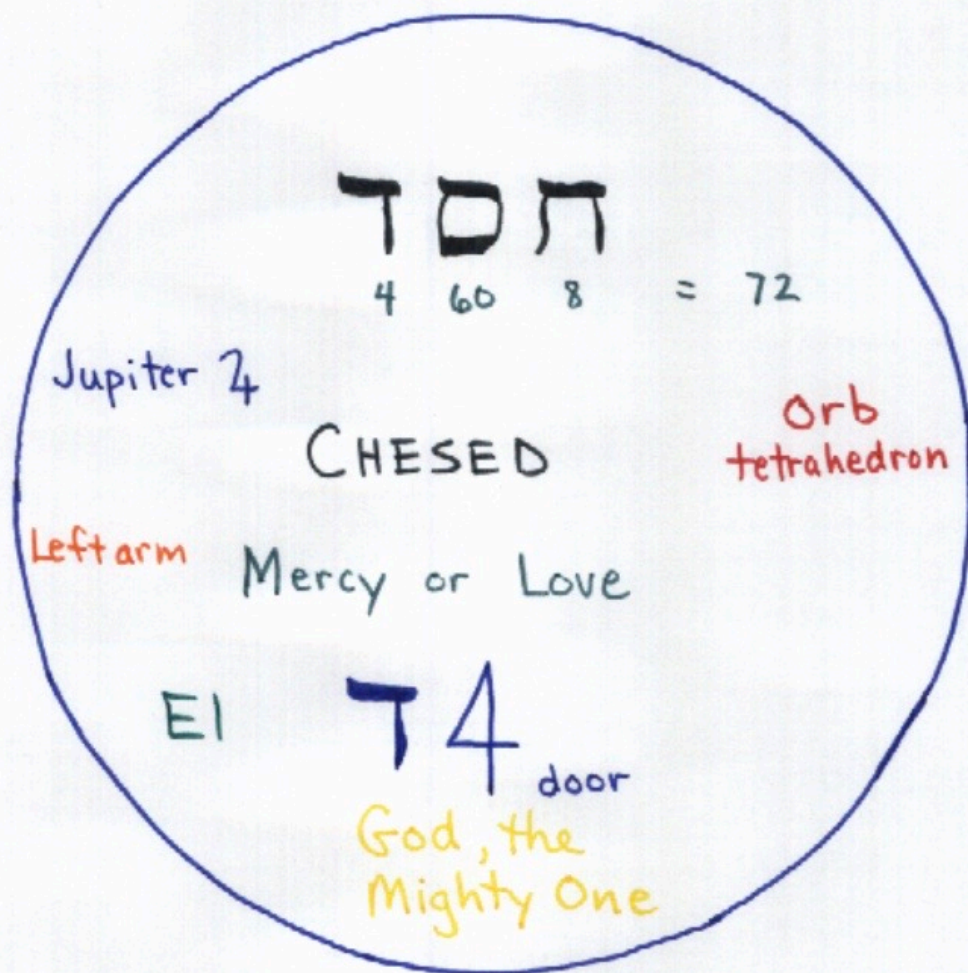 חסד
4 60 8 = 72
Jupiter ♃
Orb
tetrahedron
CHESED
Left arm
Mercy or Love
El ד 4 door
God, the
Mighty One